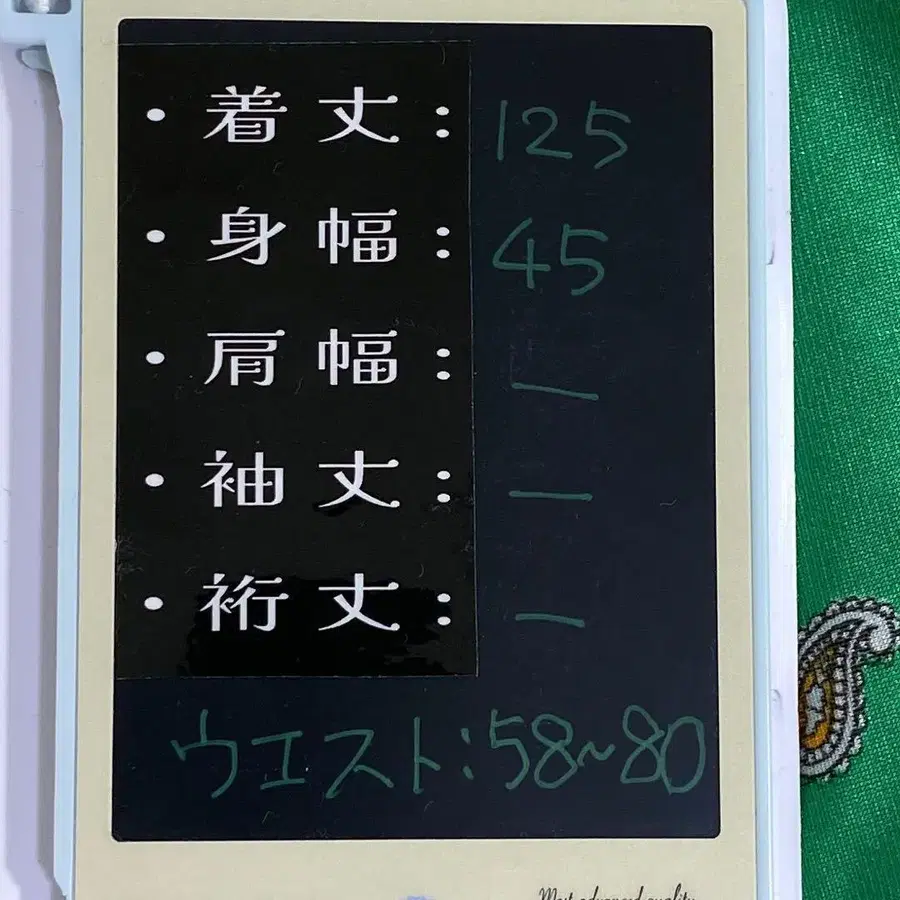 ・着丈: 125
・身幅: 45
・肩幅: —
・袖丈: —
・裄丈: —
ウエスト: 58~80
Most advanced quality